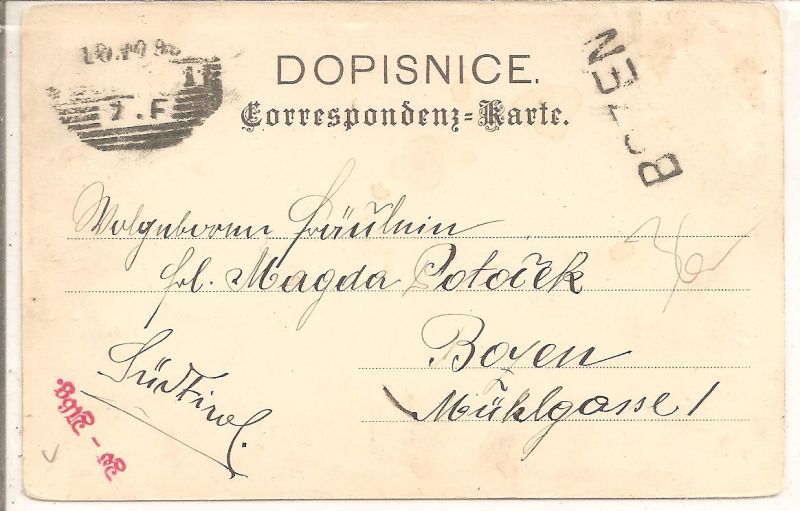 DOPISNICE.
Correspondenz=Karte.
BOZEN
7.F
Wolgeborene Fräulein
Frl. Magda Potoček
Bozen
Mühlgasse 1
Südtirol.